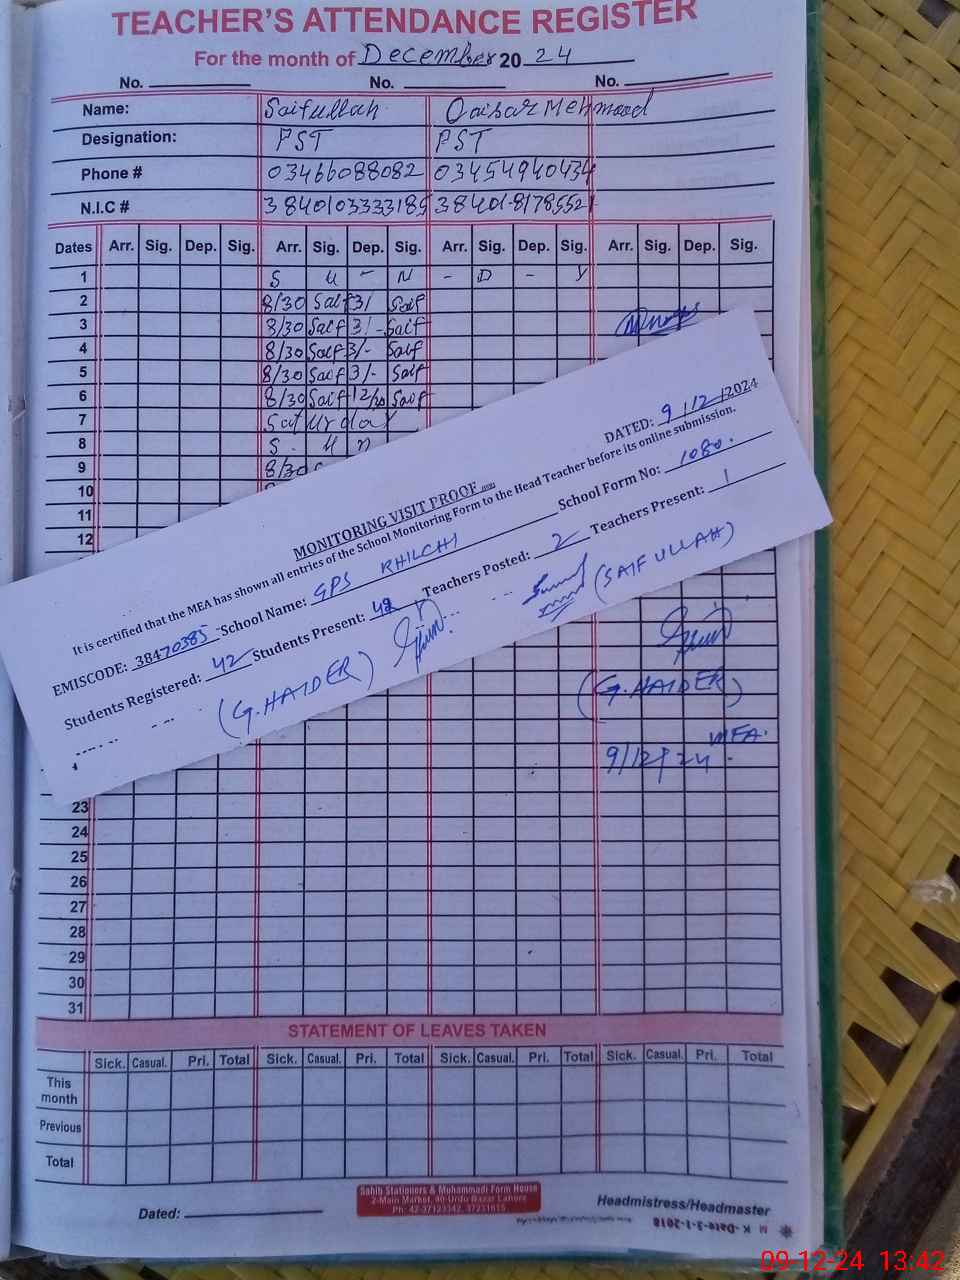 TEACHER'S ATTENDANCE REGISTER
For the month of December 2024
No. No. No.
Name: Saifullah Qaisar Mehmood
Designation: PST PST
Phone # 03466088082 03454940434
N.I.C # 3840103333185
Dates Arr. Sig. Dep. Sig. Arr. Sig. Dep. Sig. Arr. Sig. Dep. Sig. Arr. Sig. Dep. Sig.
1 S U - N - D - Y
2 8/30 Saif 3/ Saif
3 8/30 Saif 3/- Saif
4 8/30 Saif 3/- Saif
5 8/30 Saif 3/- Saif
6 8/30 Saif 12/30 Saif
7 Saturday
8 S. U n
9 8/30
10
11
12
MONITORING VISIT PROOF
DATED: 9/12/2024
It is certified that the MEA has shown all entries of the School Monitoring Form to the Head Teacher before its online submission.
EMISCODE: 38470385 School Name: GPS KHILCHI School Form No: 1080.
Students Registered: 42 Students Present: 42 Teachers Posted: 2 Teachers Present: 1
(G. HAIDER) (SAIFULLAH)
(G. HAIDER)
MEA.
9/12/24
23
24
25
26
27
28
29
30
31
STATEMENT OF LEAVES TAKEN
Sick. Casual. Pri. Total Sick. Casual. Pri. Total Sick. Casual. Pri. Total Sick. Casual. Pri. Total
This month
Previous
Total
Sahib Stationers & Muhammadi Form House
2-Main Market, 40-Urdu Bazar Lahore
Ph: 42-37123342, 37231615
Dated: Headmistress/Headmaster
M K -Date-3-1-2018
09-12-24 13:42